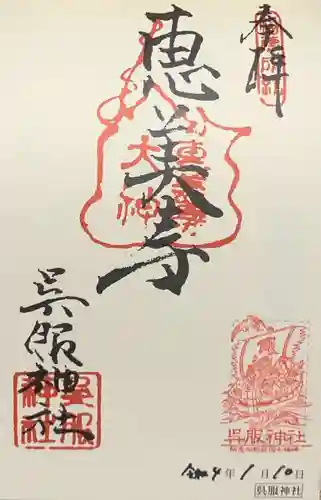 奉拝
恵美寿
呉服神社
大神
呉服神社
呉服神社
令和4年1月10日
呉服神社